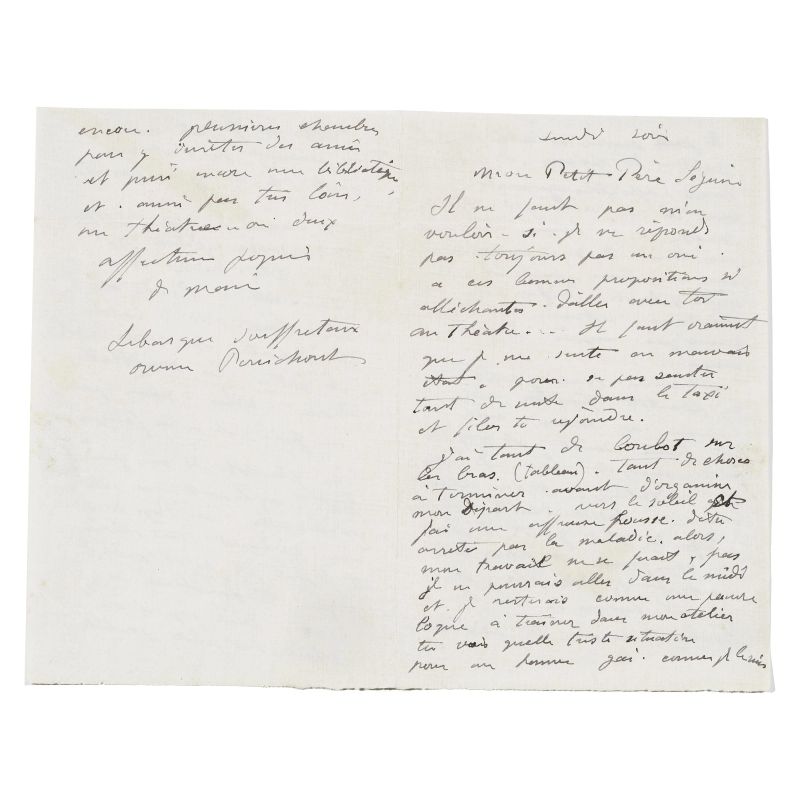 lundi soir
Mon Petit Père Séguin
Il ne faut pas m'en
vouloir si je ne réponds
pas toujours pas un oui
a ces bonnes propositions si
alléchantes d'aller avec toi
au théâtre... Il faut vraiment
que je me sente en mauvais
état pour ne pas sauter
tout de suite dans le taxi
et filer te rejoindre.
J'ai tant de boulot sur
les bras. (tableau). Tant de choses
à terminer avant d'organiser
mon départ vers le soleil
j'ai une affreuse frousse d'être
arrêté par la maladie. alors,
mon travail ne se ferait pas
je ne pourrais aller dans le midi
et je resterais comme une pauvre
loque à traîner dans mon atelier
tu vois quelle triste situation
pour un homme gai comme je le suis
encore. plusieurs chambres
pour y inviter des amis
et puis encore une bibliothèque
et aussi pas très loin,
un théâtre ou deux
affectueusement
Lebasque souffreteux